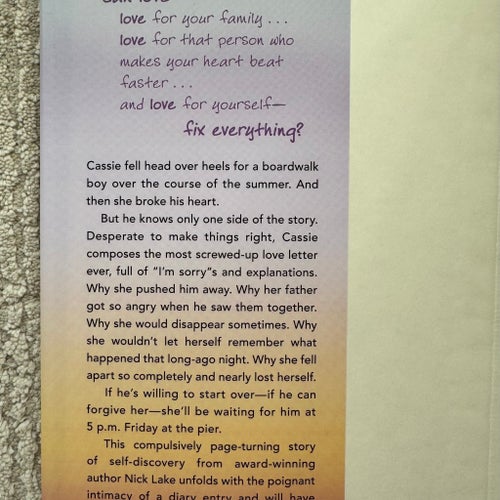 love for your family . . .
love for that person who
makes your heart beat
faster . . .
and love for yourself—
fix everything?
Cassie fell head over heels for a boardwalk
boy over the course of the summer. And
then she broke his heart.
But he knows only one side of the story.
Desperate to make things right, Cassie
composes the most screwed-up love letter
ever, full of "I'm sorry"s and explanations.
Why she pushed him away. Why her father
got so angry when he saw them together.
Why she would disappear sometimes. Why
she wouldn't let herself remember what
happened that long-ago night. Why she fell
apart so completely and nearly lost herself.
If he's willing to start over—if he can
forgive her—she'll be waiting for him at
5 p.m. Friday at the pier.
This compulsively page-turning story
of self-discovery from award-winning
author Nick Lake unfolds with the poignant
intimacy of a diary entry and will have